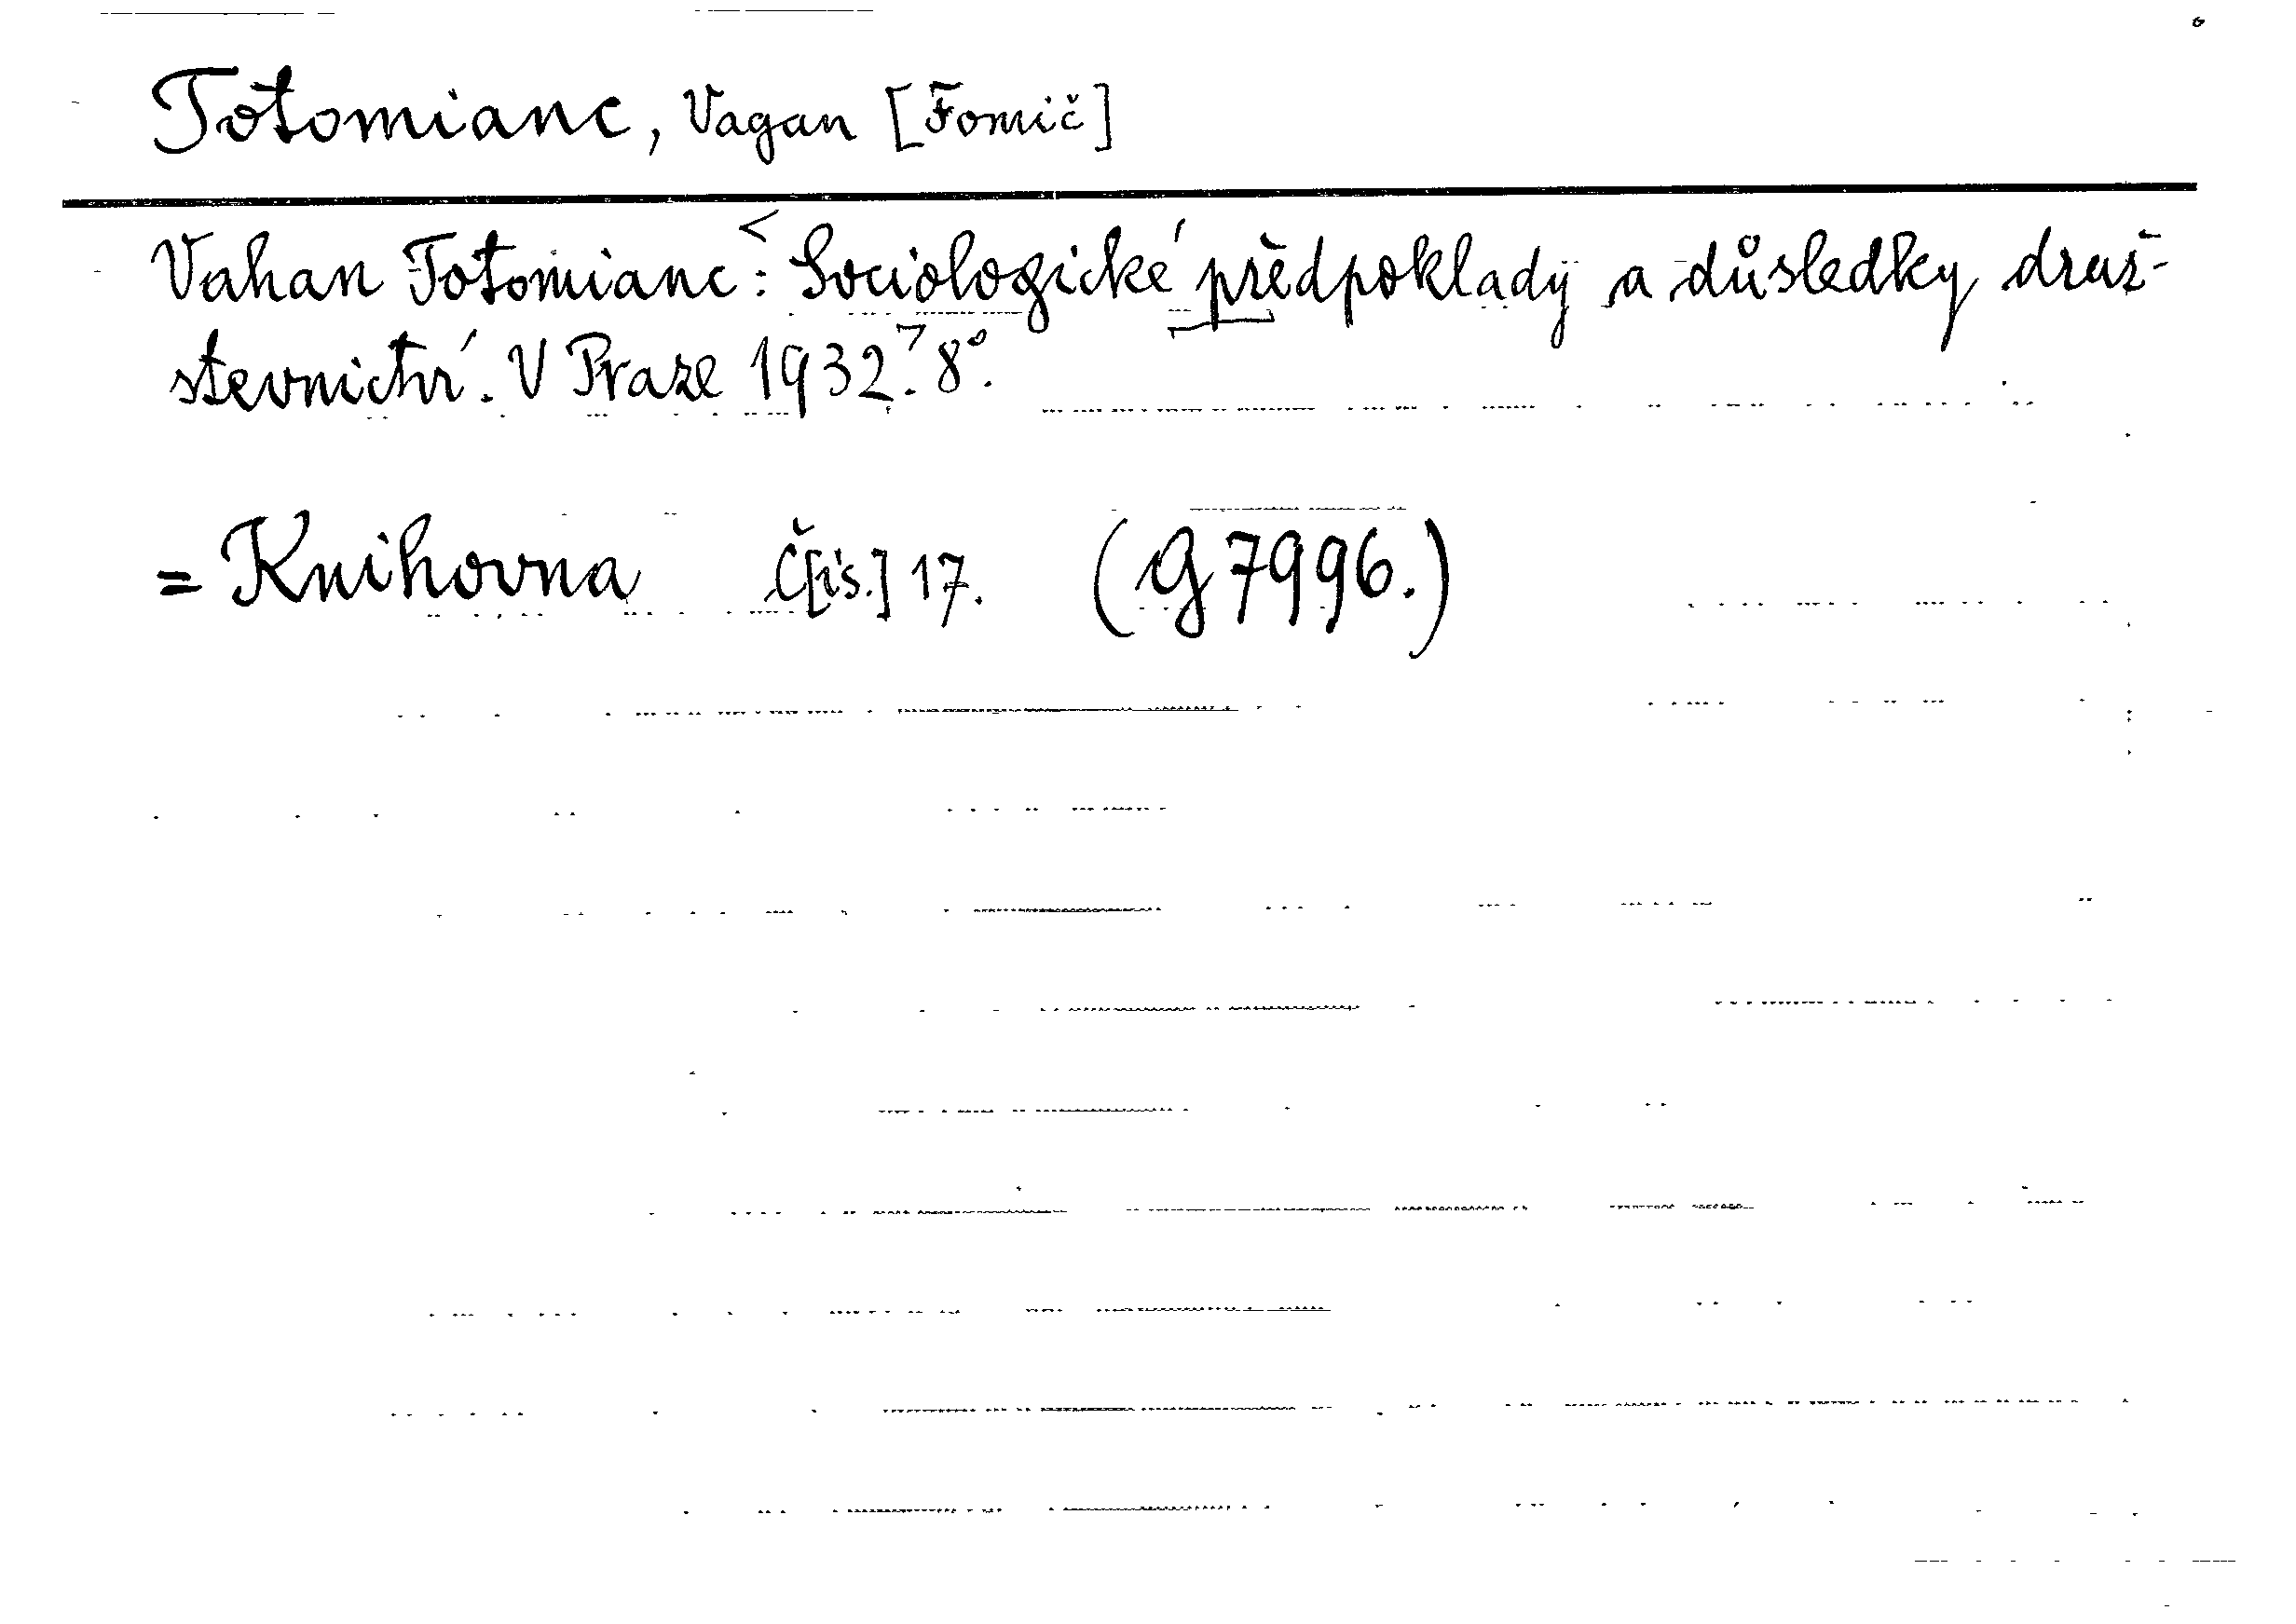 Totomianc, Vagan [Fomič]
Vahan Totomianc<: Sociologické předpoklady a důsledky druž-
stevnictví. V Praze 1932. 8°.
= Knihovna Č[ís.] 17. (G 7996.)